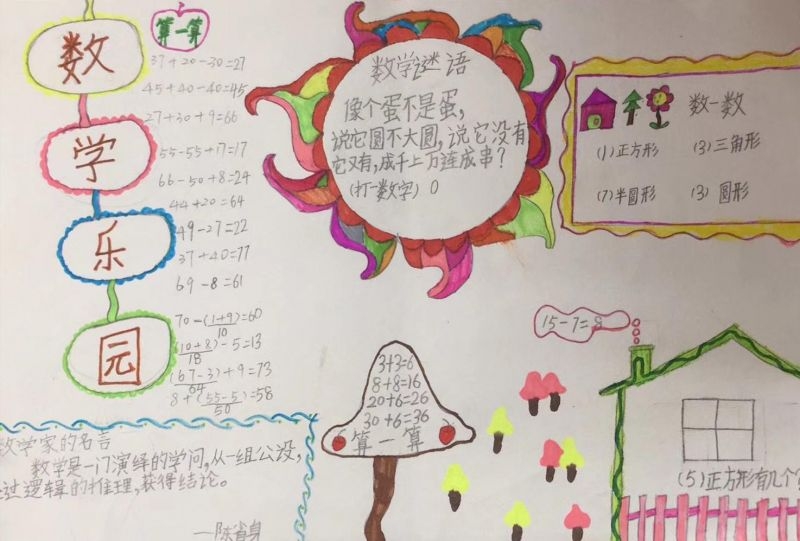 数
学
乐
园
算一算
37+20-30=27
45+40-40=45
27+30+9=66
55-55+17=17
66-50+8=24
44+20=64
49-27=22
37+40=77
69-8=61
70-(1+9)=60
10
(10+8)-5=13
18
(67-3)+9=73
64
8+(55-5)=58
50
数学谜语
像个蛋不是蛋,
说它圆不大圆,说它没有
它又有,成千上万连成串?
(打一数字) 0
数一数
(1)正方形 (3)三角形
(7)半圆形 (3)圆形
15-7=8
3+3=6
8+8=16
20+6=26
30+6=36
算一算
学家的名言
数学是一门演绎的学问,从一组公设,
过逻辑的推理,获得结论。
—陈省身
(5)正方形有几个